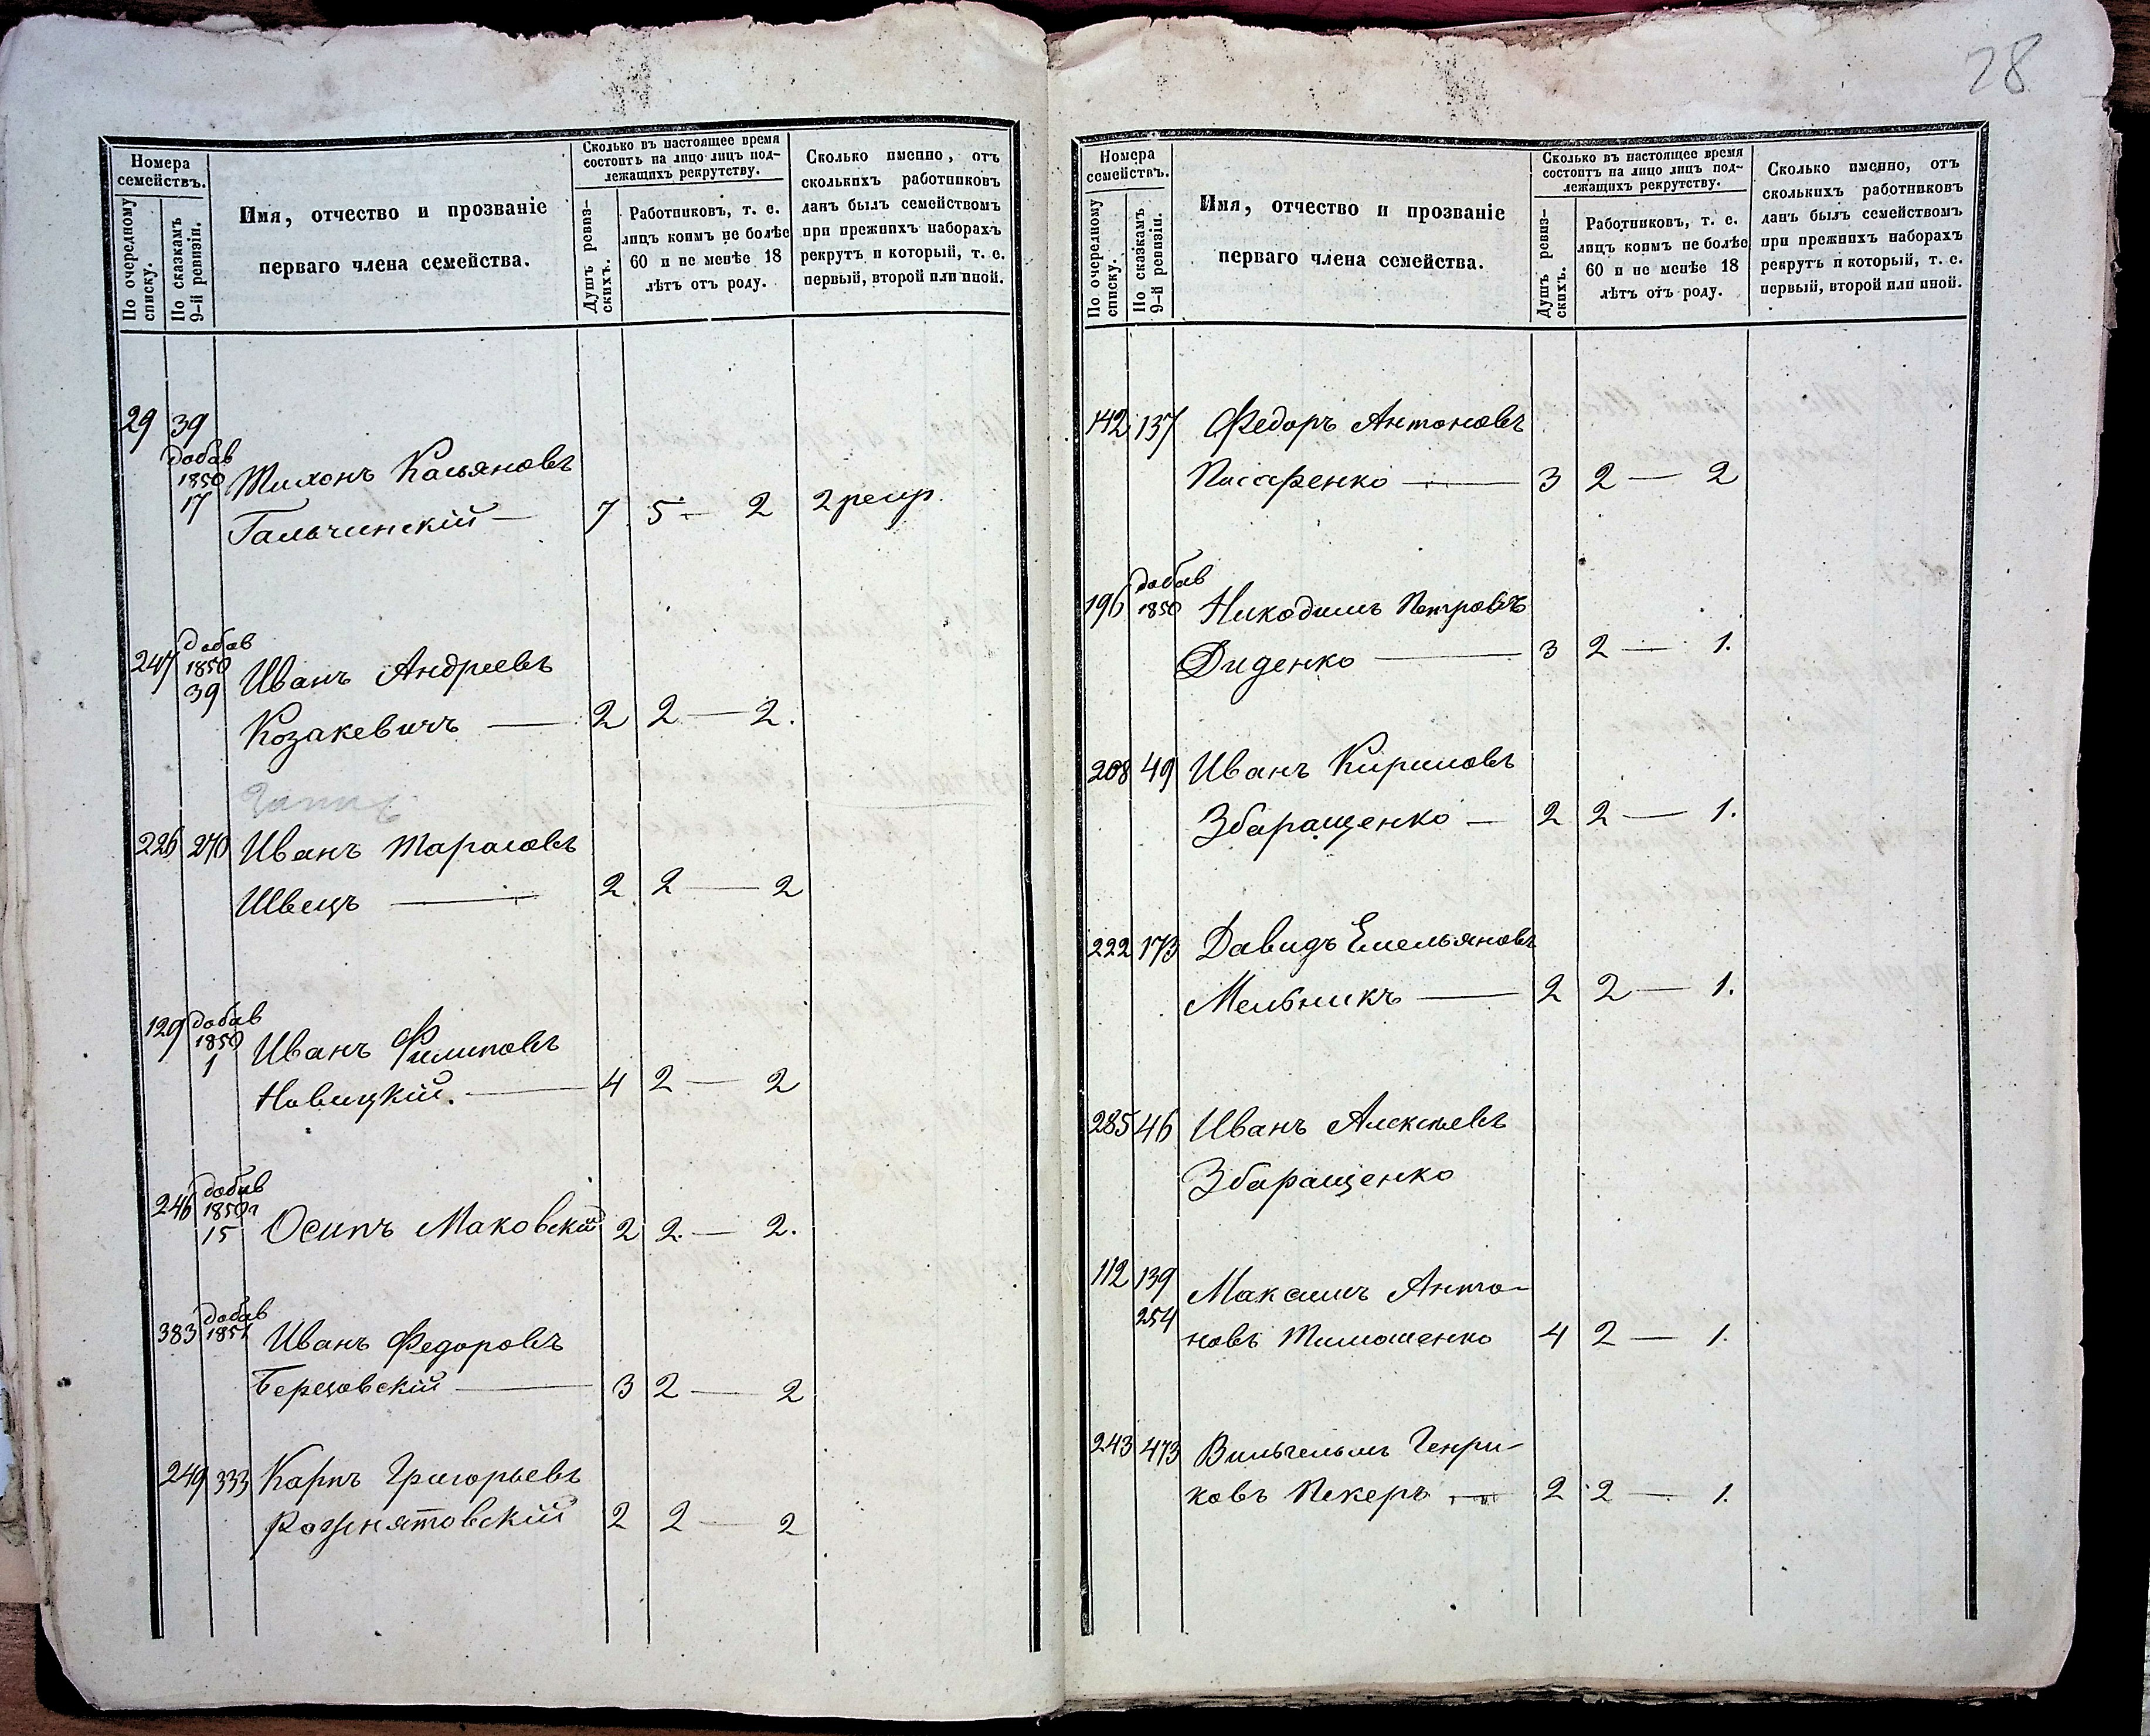 28
Номера
семействъ.
По очередному
списку.
По сказкамъ
9-й ревизіи.
Имя, отчество и прозваніе
перваго члена семейства.
Сколько въ настоящее время
состоитъ на лицо лицъ под-
лежащихъ рекрутству.
Душъ ревиз-
скихъ.
Работниковъ, т. е.
лицъ коимъ не болѣе
60 и не менѣе 18
лѣтъ отъ роду.
Сколько именно, отъ
сколькихъ работниковъ
данъ былъ семействомъ
при прежнихъ наборахъ
рекрутъ и который, т. е.
первый, второй или иной.
29 39
добав
1850
17 Тихонъ Касьяновъ
Гальчинскій — 7 5 — 2
247 добав
1850
39 Иванъ Андреевъ
Козакевичъ — 2 2 — 2.
226 270 Иванъ Тарасовъ
Швецъ — 2 2 — 2
129 добав
1850
1 Иванъ Филиповъ
Новицкій. — 4 2 — 2
246 добав
1850г
15 Осипъ Маковскій 2 2 — 2.
383 добав
1851 Иванъ Федоровъ
Березовскій — 3 2 — 2
249 333 Карпъ Григорьевъ
Рожнятовскій 2 2 — 2
Номера
семействъ.
По очередному
списку.
По сказкамъ
9-й ревизіи.
Имя, отчество и прозваніе
перваго члена семейства.
Сколько въ настоящее время
состоитъ на лицо лицъ под-
лежащихъ рекрутству.
Душъ ревиз-
скихъ.
Работниковъ, т. е.
лицъ коимъ не болѣе
60 и не менѣе 18
лѣтъ отъ роду.
Сколько именно, отъ
сколькихъ работниковъ
данъ былъ семействомъ
при прежнихъ наборахъ
рекрутъ и который, т. е.
первый, второй или иной.
142 137 Федоръ Антоновъ
Писаренко — 3 2 — 2
196 добав
1850 Никодимъ Петровъ
Диденко — 3 2 — 1.
208 49 Иванъ Кириловъ
Збаращенко — 2 2 — 1.
222 173 Давидъ Емельяновъ
Мельникъ — 2 2 — 1.
285 46 Иванъ Алексѣевъ
Збаращенко
112 139
254 Максимъ Анто-
новъ Тимошенко 4 2 — 1.
243 473 Вильгельмъ Генри-
ковъ Пекеръ — 2 2 — 1.